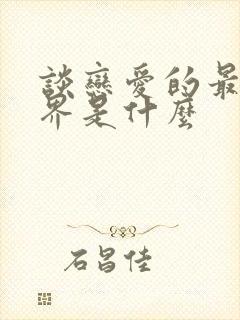 談戀愛的最
界是什麼
石昌佳